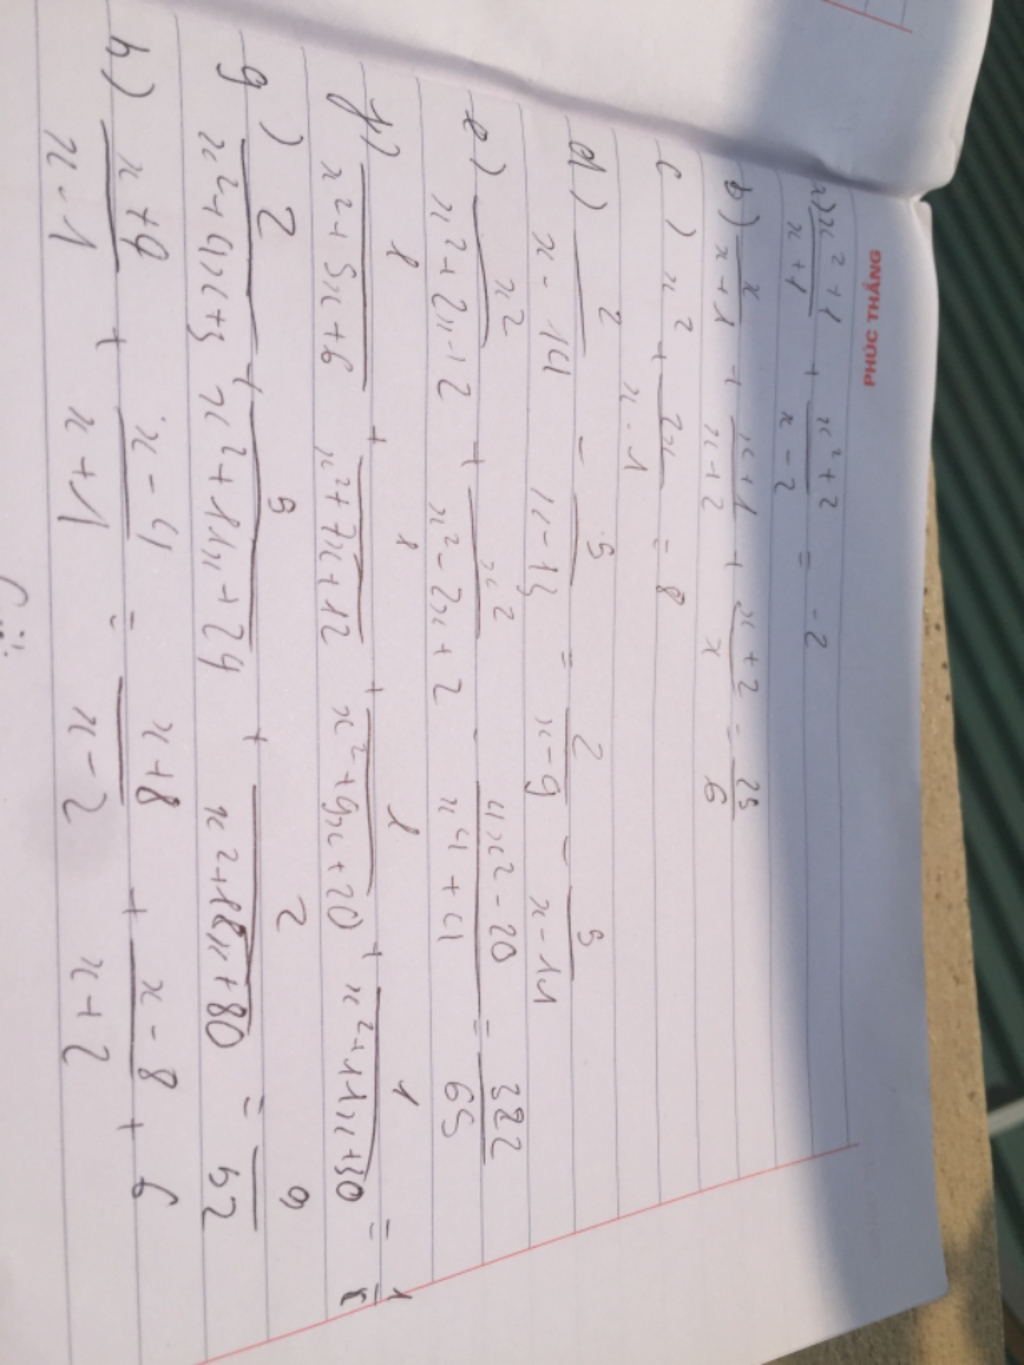 PHÚC THẮNG
a) (x²+1)/(x+1) + (x²+2)/(x-2) = -2
b) x/(x+1) + (x+1)/(x+2) + (x+2)/x = 25/6
c) x² + 2x/(x-1) = 8
d) 2/(x-14) - 5/(x-13) = 2/(x-9) - 5/(x-11)
e) x²/(x²+2x+2) + x²/(x²-2x+2) - (4x²-20)/(x⁴+4) = 322/65
f) 1/(x²+5x+6) + 1/(x²+7x+12) + 1/(x²+9x+20) + 1/(x²+11x+30) = 1/8
g) 2/(x²+4x+3) + 5/(x²+11x+24) + 2/(x²+18x+80) = 9/52
h) (x+9)/(x-1) + (x-4)/(x+1) = (x+8)/(x-2) + (x-8)/(x+2) + 6